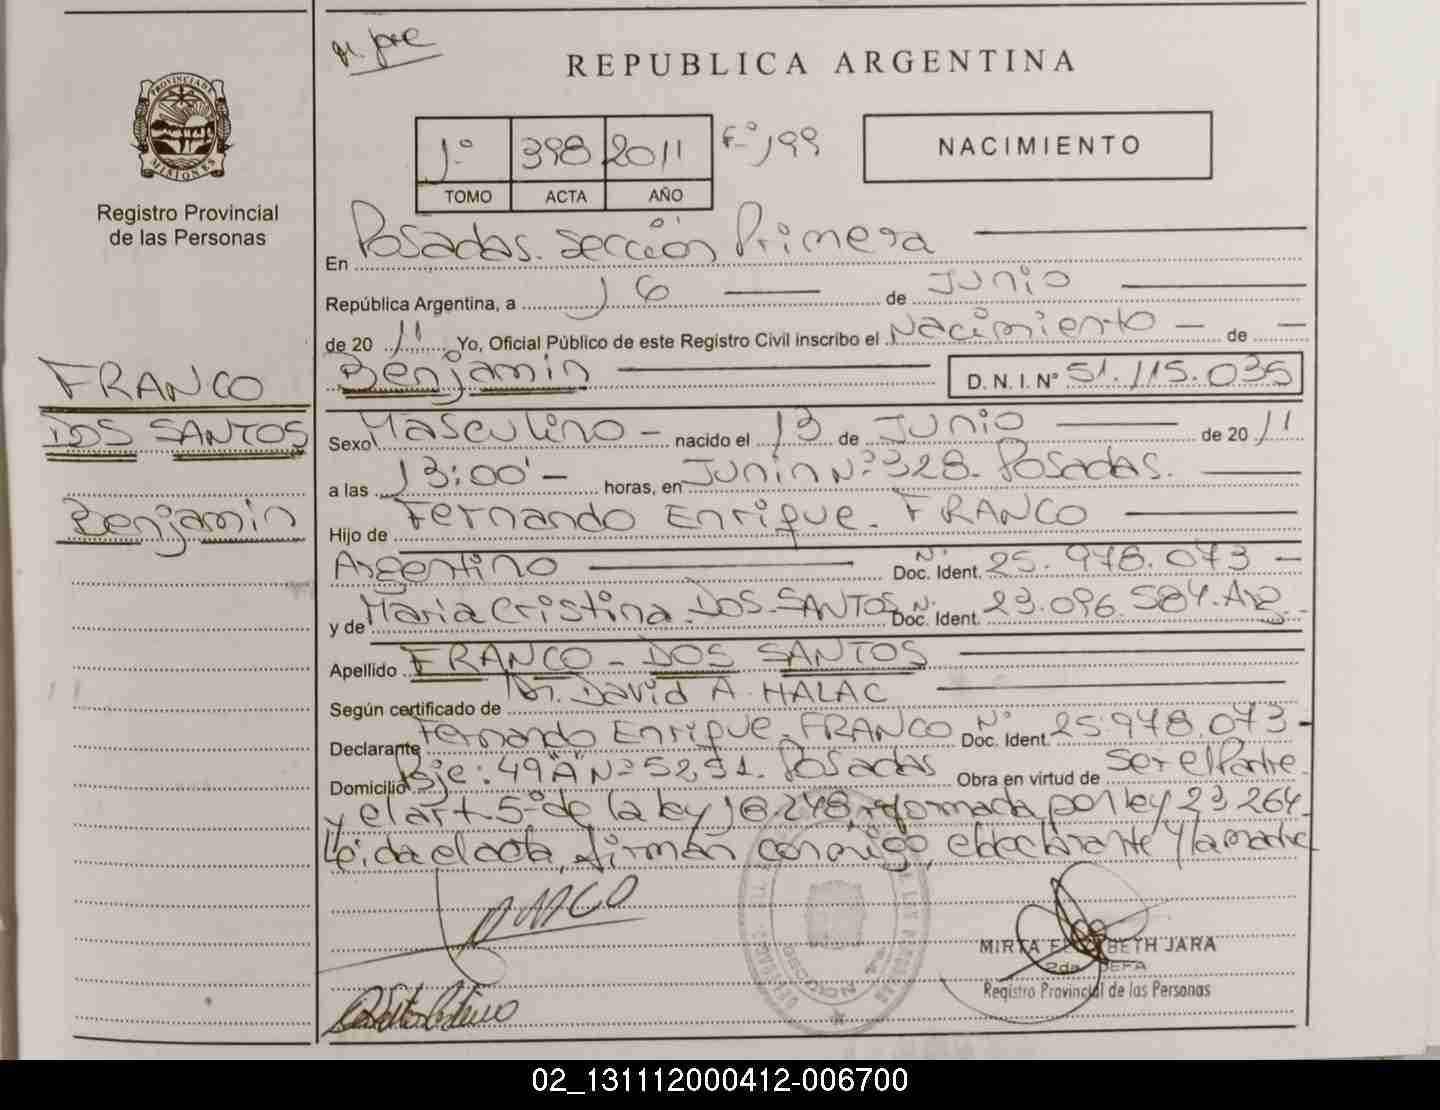 REPUBLICA ARGENTINA
PROVINCIA DE
MISIONES
Registro Provincial
de las Personas
1º 398 2011 Fº 199
TOMO ACTA AÑO
NACIMIENTO
En Posadas. Sección Primera
República Argentina, a 16 de Junio
de 20 11 Yo, Oficial Público de este Registro Civil inscribo el Nacimiento — de —
Benjamin D. N. I. Nº 51.115.035
FRANCO
DOS SANTOS
Benjamin
Sexo Masculino - nacido el 13 de Junio de 20 11
a las 13:00' - horas, en Junin Nº 328. Posadas.
Hijo de Fernando Enrique. FRANCO
Argentino Doc. Ident. Nº 25.978.073 -
y de Maria Cristina. DOS-SANTOS Doc. Ident. Nº 23.096.584.
Apellido FRANCO - DOS SANTOS
Según certificado de Dr. David A HALAC
Declarante Fernando Enrique. FRANCO Doc. Ident. Nº 25.978.073 -
Domicilio Pje: 49"A" Nº 5291. Posadas Obra en virtud de Ser el Padre.
y el art. 5º de la ley 18.248, reformada por ley 23 264.
Leida el acta, firman conmigo, el declarante y la madre
MIRTA ELIZABETH JARA
2da. JEFA
Registro Provincial de las Personas
SECCION 1ª
02_131112000412-006700